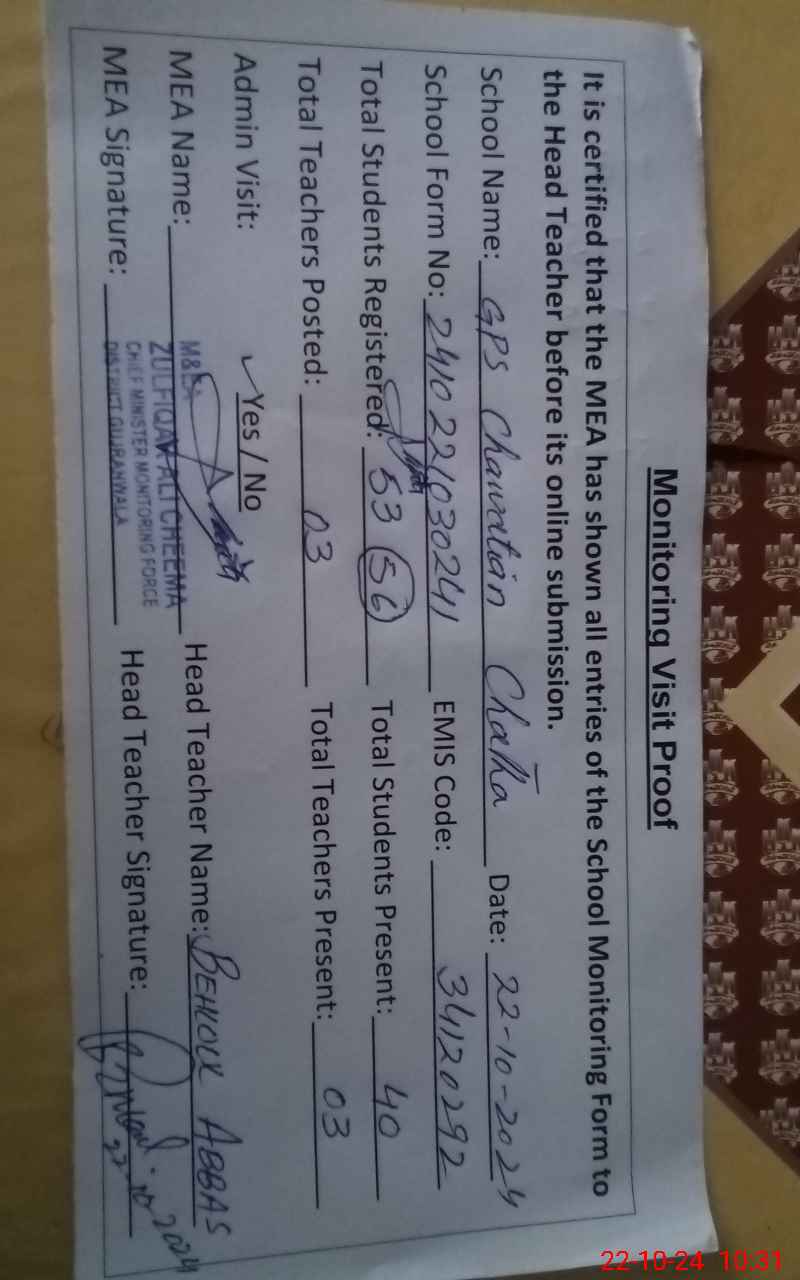 Monitoring Visit Proof
It is certified that the MEA has shown all entries of the School Monitoring Form to
the Head Teacher before its online submission.
School Name: GPS Chatha Date: 22-10-2024
School Form No: 2410221030241 EMIS Code: 34120292
Total Students Registered: 53 56 Total Students Present: 40
Total Teachers Posted: 03 Total Teachers Present: 03
Admin Visit: ✓Yes / No
MEA Name: M&EA Head Teacher Name: ABBAS
ZULFIQAR ALI CHEEMA
CHIEF MINISTER MONITORING FORCE
DISTRICT GUJRANWALA
MEA Signature: Head Teacher Signature:
22-10-24 10:31